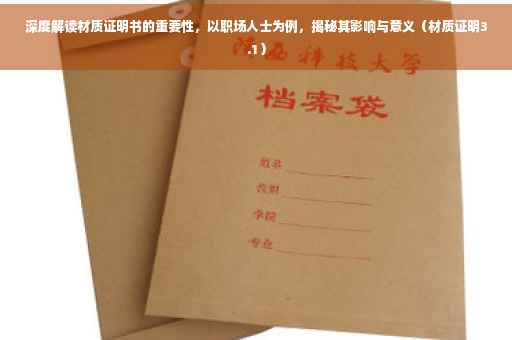 深度解读材质证明书的重要性，以职场人士为例，揭秘其影响与意义（材质证明3
.1）
科技大学
档案袋
姓名
学院
专业